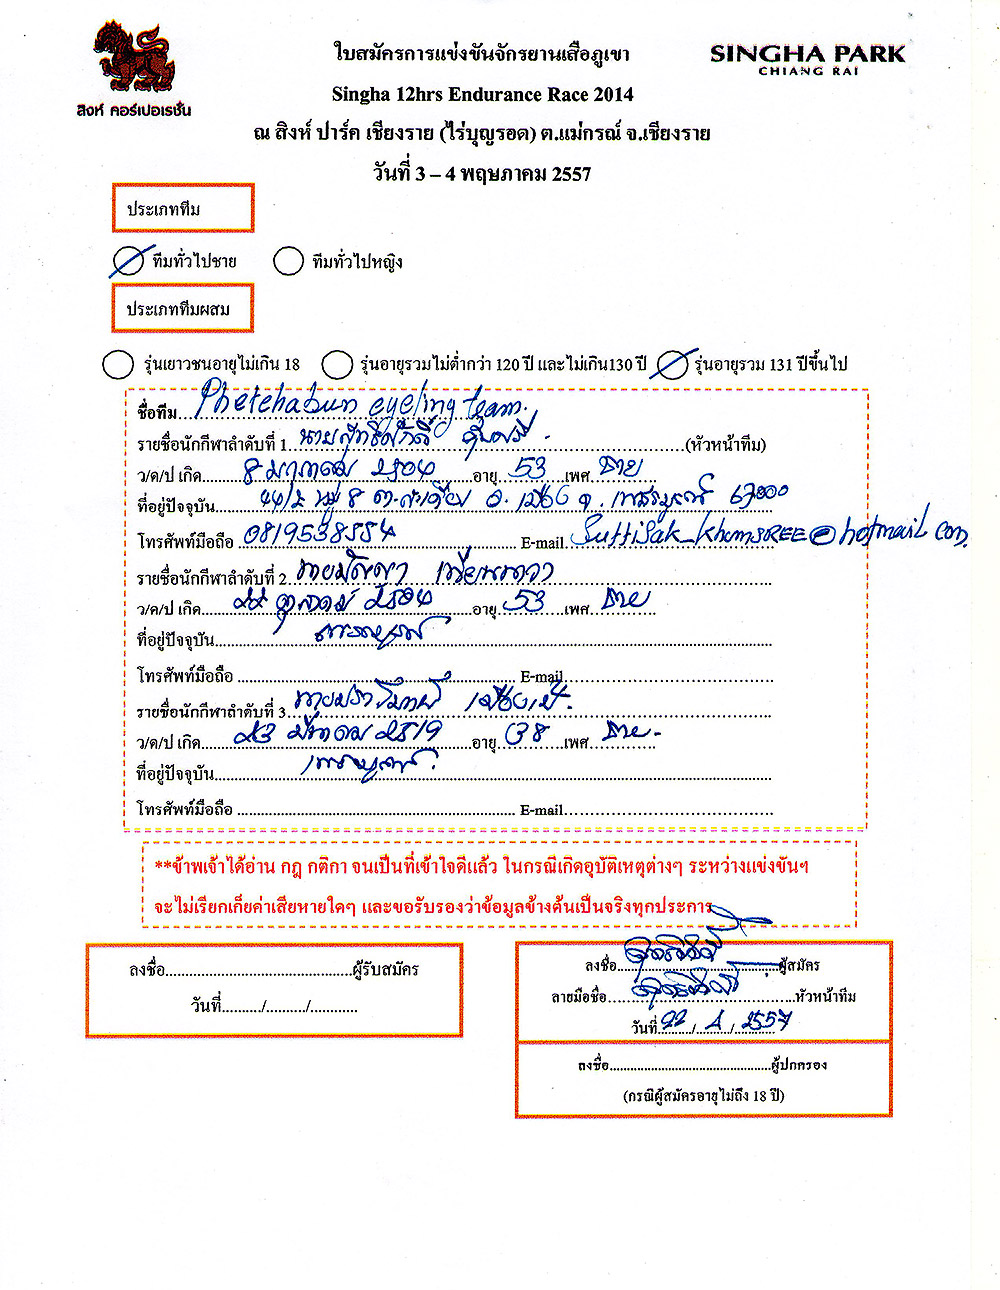 สิงห์ คอร์เปอเรชั่น
SINGHA PARK
CHIANG RAI
ใบสมัครการแข่งขันจักรยานเสือภูเขา
Singha 12hrs Endurance Race 2014
ณ สิงห์ ปาร์ค เชียงราย (ไร่บุญรอด) ต.แม่กรณ์ จ.เชียงราย
วันที่ 3 – 4 พฤษภาคม 2557
ประเภททีม
ทีมทั่วไปชาย ทีมทั่วไปหญิง
ประเภททีมผสม
รุ่นเยาวชนอายุไม่เกิน 18 รุ่นอายุรวมไม่ต่ำกว่า 120 ปี และไม่เกิน130 ปี รุ่นอายุรวม 131 ปีขึ้นไป
ชื่อทีม Phetchabun cycling team.
รายชื่อนักกีฬาลำดับที่ 1. นายสุทธิศักดิ์ (หัวหน้าทีม)
ว/ด/ป เกิด 8 มกราคม 2504 อายุ 53 เพศ ชาย
ที่อยู่ปัจจุบัน 44/2 หมู่ 8 ต.สะเดียง อ.เมือง จ.เพชรบูรณ์ 67000
โทรศัพท์มือถือ 0819538554 E-mail Suttisak_khumsREE@hotmail.com.
รายชื่อนักกีฬาลำดับที่ 2. นายปัญญา
ว/ด/ป เกิด 22 ตุลาคม 2504 อายุ 53 เพศ ชาย
ที่อยู่ปัจจุบัน เพชรบูรณ์
โทรศัพท์มือถือ E-mail
รายชื่อนักกีฬาลำดับที่ 3
ว/ด/ป เกิด 23 มีนาคม 2519 อายุ 38 เพศ ชาย
ที่อยู่ปัจจุบัน เพชรบูรณ์
โทรศัพท์มือถือ E-mail
**ข้าพเจ้าได้อ่าน กฎ กติกา จนเป็นที่เข้าใจดีแล้ว ในกรณีเกิดอุบัติเหตุต่างๆ ระหว่างแข่งขันฯ
จะไม่เรียกเก็ยค่าเสียหายใดๆ และขอรับรองว่าข้อมูลข้างต้นเป็นจริงทุกประการ
ลงชื่อ ผู้รับสมัคร
วันที่ / /
ลงชื่อ สุทธิศักดิ์ ผู้สมัคร
ลายมือชื่อ สุทธิศักดิ์ หัวหน้าทีม
วันที่ 22 / 4 / 2557
ลงชื่อ ผู้ปกครอง
(กรณีผู้สมัครอายุไม่ถึง 18 ปี)